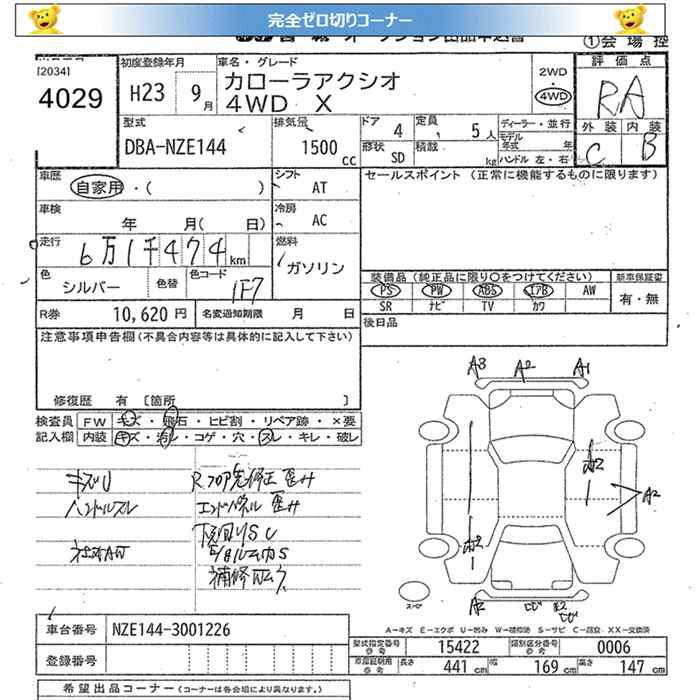 完全ゼロ切りコーナー
①会場控
[2034]
4029
初度登録年月
H23 9月
車名・グレード
カローラアクシオ
4WD X
2WD
4WD
評価点
RA
外装 内装
C B
型式
DBA-NZE144
排気量
1500cc
ドア 4
形状 SD
定員 5人
積載 kg
ディーラー・並行
モデル年式 年
ハンドル 左・右
車歴
自家用・( )
シフト
AT
セールスポイント (正常に機能するものに限ります)
車検
年 月( 日)
冷房
AC
走行
6万1千474km
燃料
ガソリン
色
シルバー
色替
色コード
1F7
装備品(純正品に限り○をつけてください)
PS PW ABS エアB AW
SR ナビ TV カワ
新車保証書
有・無
R券 10,620円
名変通知期限 月 日
後日品
注意事項申告欄(不具合内容等は具体的に記入して下さい)
修復歴 有 〔箇所 〕
検査員記入欄
FW キズ・飛石・ヒビ割・リペア跡・×要
内装 キズ・汚レ・コゲ・穴・スレ・キレ・破レ
キズU
ハンドルスレ
Rフロア先修正歪み
エンドパネル歪み
下廻りSC
A3 A2 A1
A2
A2
A2
A2
スペア
A-キズ E-エクボ U-凹み W-補修跡 S-サビ C-腐食 XX-交換済
車台番号 NZE144-3001226
登録番号
型式指定番号 参考 15422
類別区分番号 参考 0006
車庫証明用 参考 長さ 441cm 幅 169cm 高さ 147cm
希望出品コーナー(コーナーは各会場により異なります。)